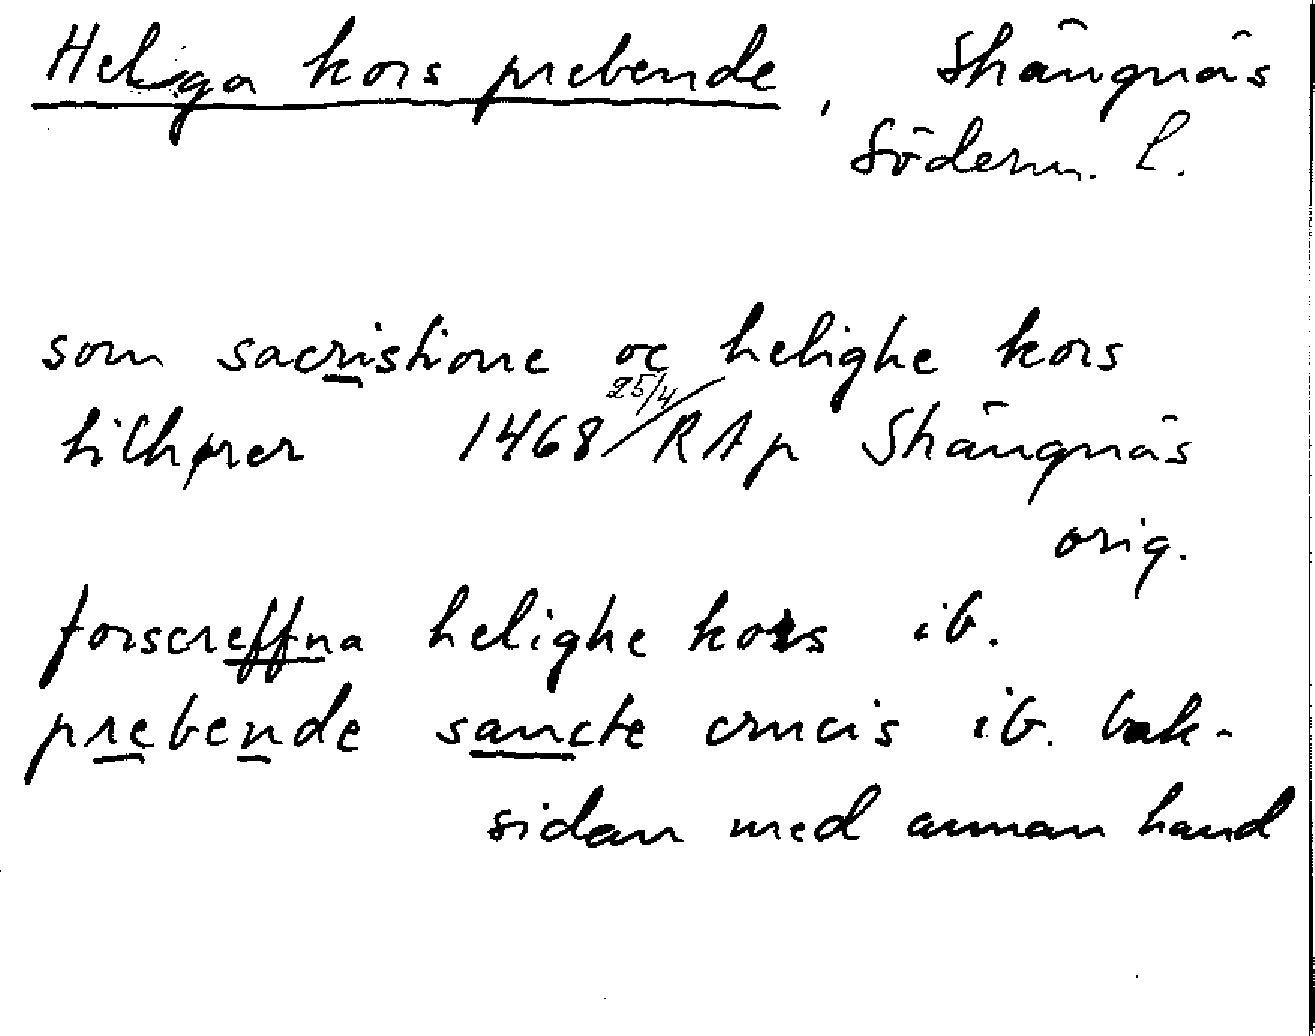 Heliga kors prebende, Strängnäs
Söderm. l.
som sacristione oc helighe kors
tilhører 1468 25/4 RAp Strängnäs
orig.
forscreffna helighe kors ib.
prebende sancte crucis ib. bak-
sidan med annan hand